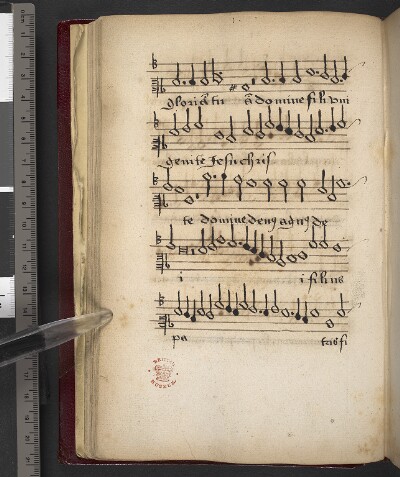 gloriã tu ã domine fili vni
genite Jesu chris
te domine deus agnus de
i i filius
pa tris fi
BRITISH
MUSEUM